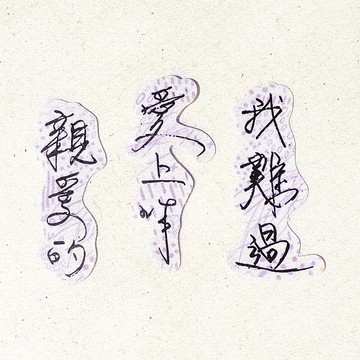 我難過
愛上
親愛的